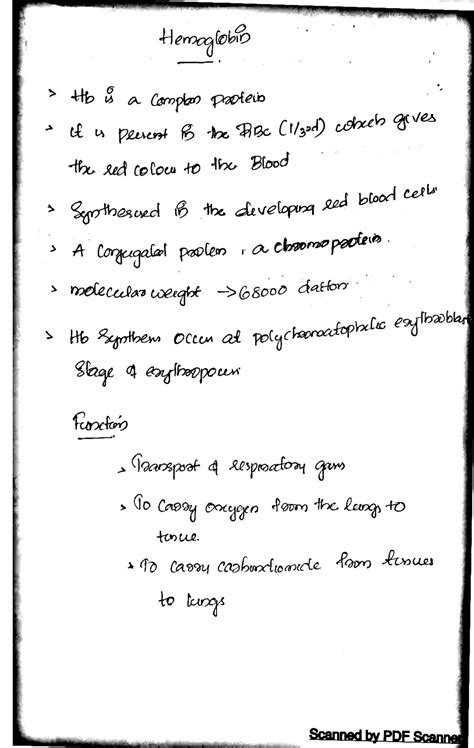 Hemoglobin
> Hb is a complex protein
> It is present in the RBC (1/3rd) which gives
the red colour to the Blood
> Synthesized in the developing red blood cells
> A Conjugated protein, a chromoprotein.
> molecular weight → 68000 dalton
> Hb Synthesis occur at polychromatophilic erythroblast
Stage of erythropoiesis
Function
> Transport of respiratory gases
> To carry oxygen from the lungs to
tissue.
> To carry carbondioxide from tissues
to lungs
Scanned by PDF Scanner